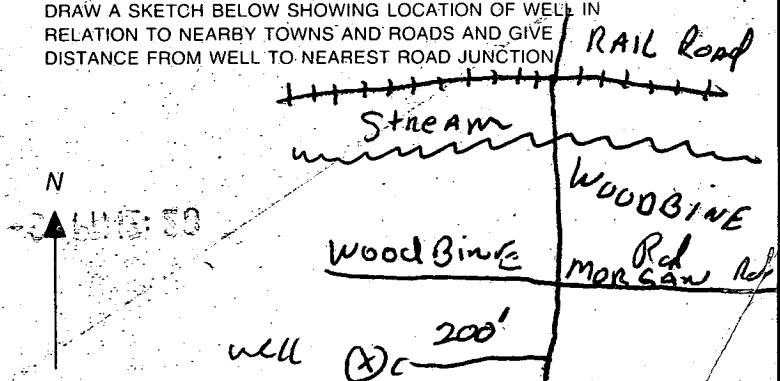 DRAW A SKETCH BELOW SHOWING LOCATION OF WELL IN
RELATION TO NEARBY TOWNS AND ROADS AND GIVE
DISTANCE FROM WELL TO NEAREST ROAD JUNCTION
RAIL ROAD
Stream
N
WOODBINE
Rd
Wood Bine
MORGAN Rd
200'
well X